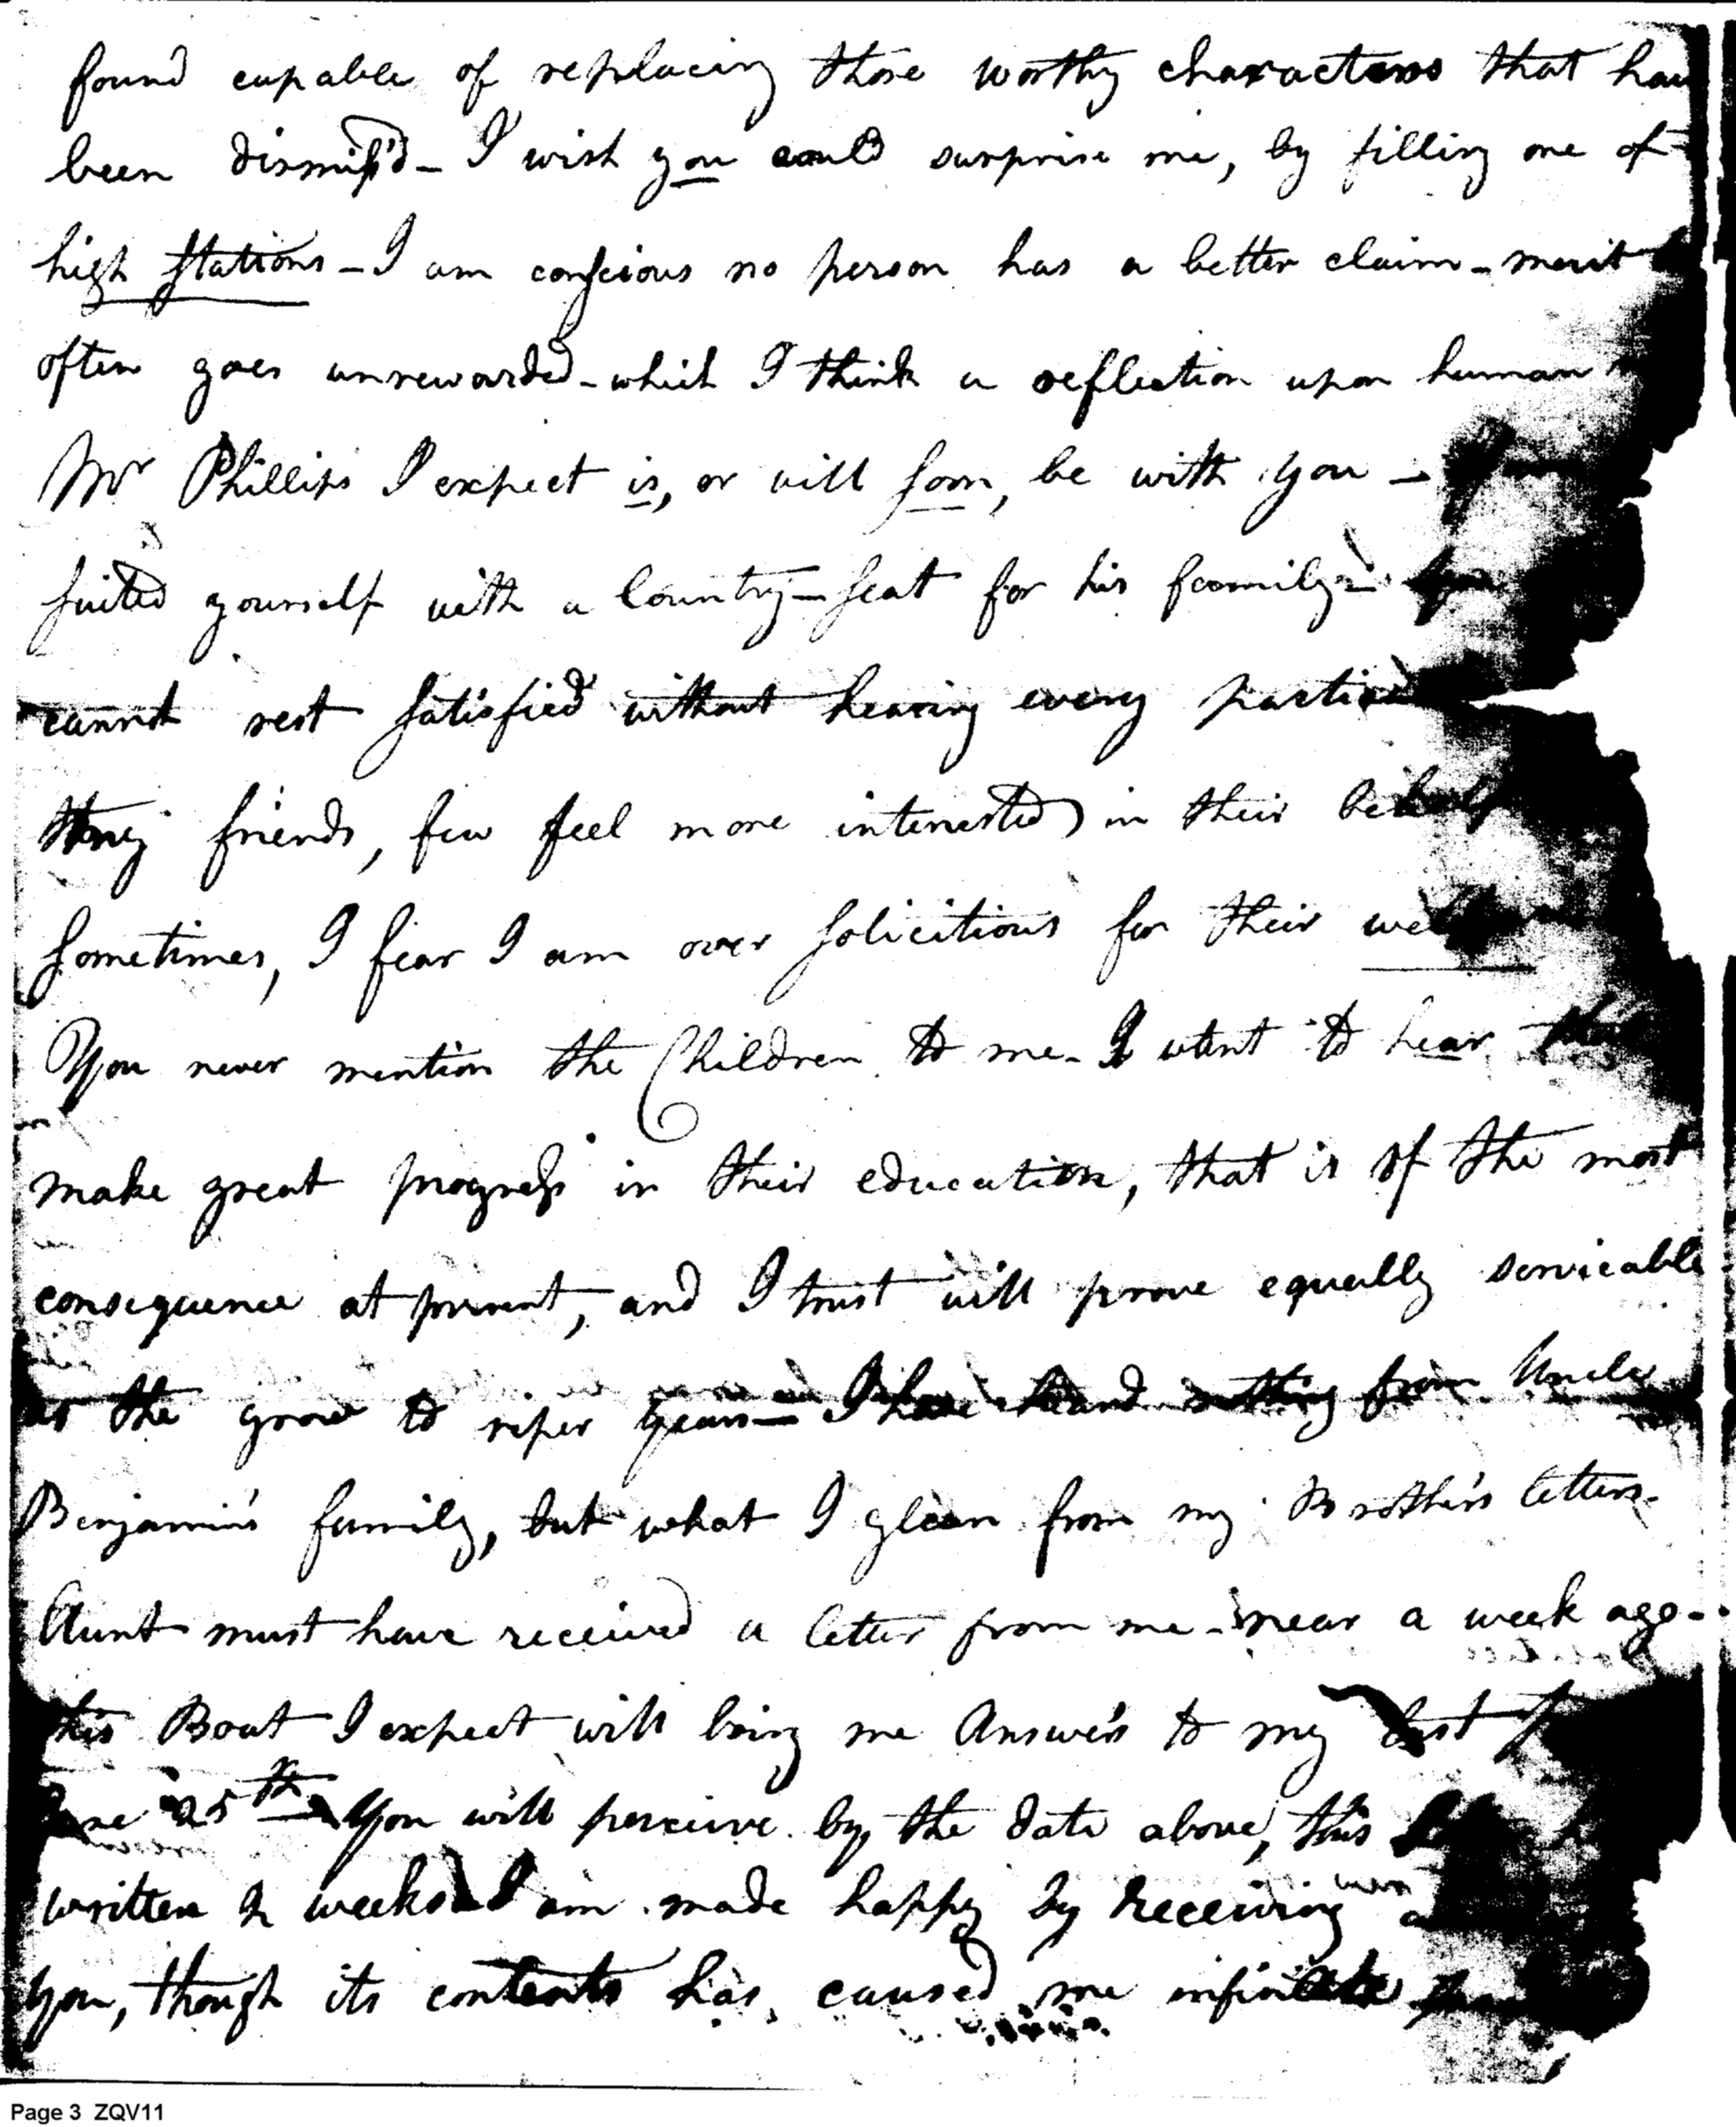 found capable of replacing those worthy characters that have
been dismiſs'd – I wish you could surprise me, by filling one of
high ſtations – I am conſcious no person has a better claim – merit
often goes unrewarded – which I think a reflection upon human
Mr Phillips I expect is, or will ſoon, be with you –
ſuited yourself with a Country–ſeat for his family –
cannot rest ſatisfied without hearing every
friends, few feel more interested in their behalf
ſometimes, I fear I am over ſolicitious for their
You never mention the Children to me – I want to hear
make great progreſs in their education, that is of the most
consequence at present, and I trust will prove equally servicable
as the grow to riper years – I have heard nothing from Uncle
Benjamin's family, but what I glean from my Brother's letters –
Aunt must have received a letter from me – near a week ago –
this Boat I expect will bring me Answer's to my last
June 25th – You will perceive by the date above, this
written 2 weeks – I am made happy by receiving
you, though its contents has caused me infinite
Page 3 ZQV11